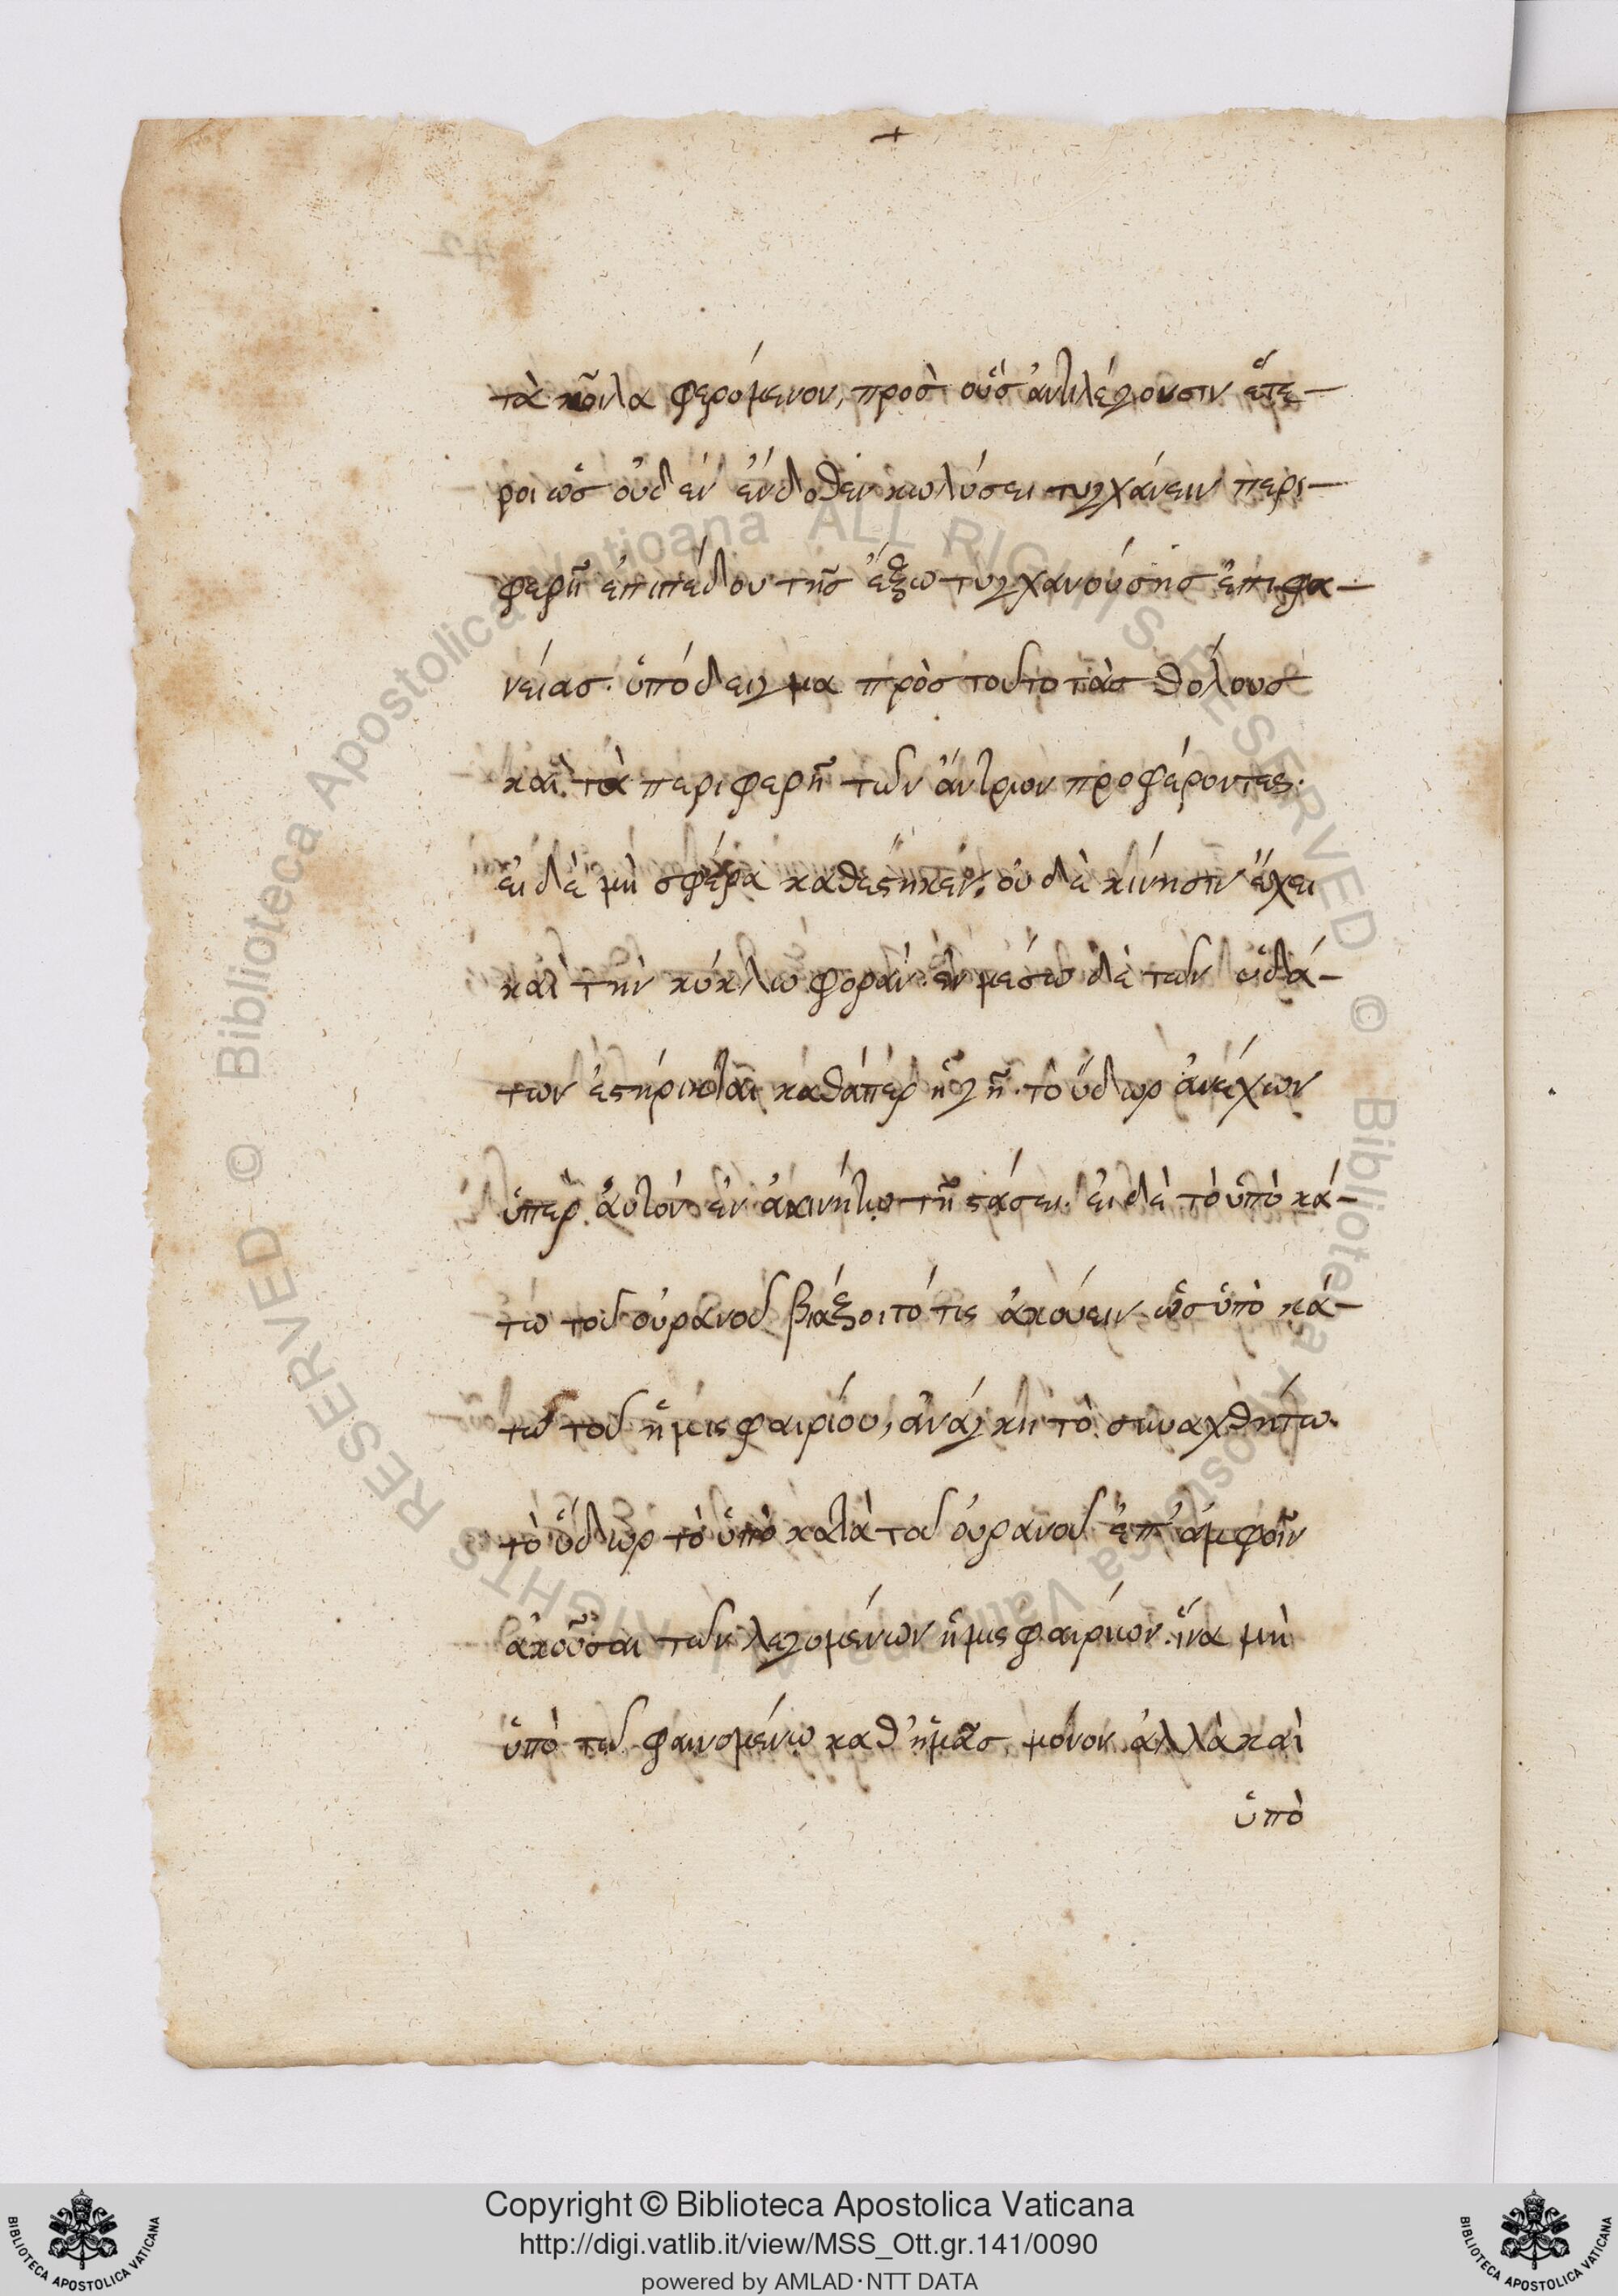 τὰ κοῖλα φερόμενον, προσ οὕσ ἀντιλέγουσιν ἕτε-
ροι ὡσ οὐδὲν ἔνδοθεν κωλύσει τυγχάνειν περι-
φερῆ ἐπιπέδου τῆσ ἔξω τυγχανούσησ ἐπιφα-
νείασ. ὑπόδειγμα πρὸσ τοῦτο τὰσ θόλουσ
καὶ τὰ περιφερῆ τῶν ἄντρων προφέροντες.
εἰ δὲ μὴ σφέρα καθέστηκεν, οὐδὲ κίνησιν ἔχει
καὶ τὴν κύκλω φοράν. ἐν μέσω δὲ τῶν ὑδά-
των ἐστήρικται καθάπερ ἡ γῆ. τὸ ὕδωρ ἀνέχων
ὑπὲρ αὐτὸν ἐν ἀκινήτω τῆ στάσει. εἰ δὲ τὸ ὑπὸ κά-
τω τοῦ οὐρανοῦ βιάζοιτό τις ἀκούειν ὡσ ὑπὸ κά-
τω τοῦ ἡμισφαιρίου, ἀνάγκη τὸ συναχθήτω
τὸ ὕδωρ τὸ ὑπὸ κατὰ τοῦ οὐρανοῦ ἐπ' ἀμφοῖν
ἀκοῦσαι τῶν λεγομένων ἡμισφαιρίων. ἵνα μὴ
ὑπὸ τῶ φαινομένω καθ' ἡμᾶσ μόνον ἀλλὰ καὶ
ὑπὸ
Copyright © Biblioteca Apostolica Vaticana
http://digi.vatlib.it/view/MSS_Ott.gr.141/0090
powered by AMLAD·NTT DATA
BIBLIOTECA APOSTOLICA VATICANA
BIBLIOTECA APOSTOLICA VATICANA
© Biblioteca Apostolica Vaticana ALL RIGHTS RESERVED © Biblioteca Apostolica Vaticana ALL RIGHTS RESERVED